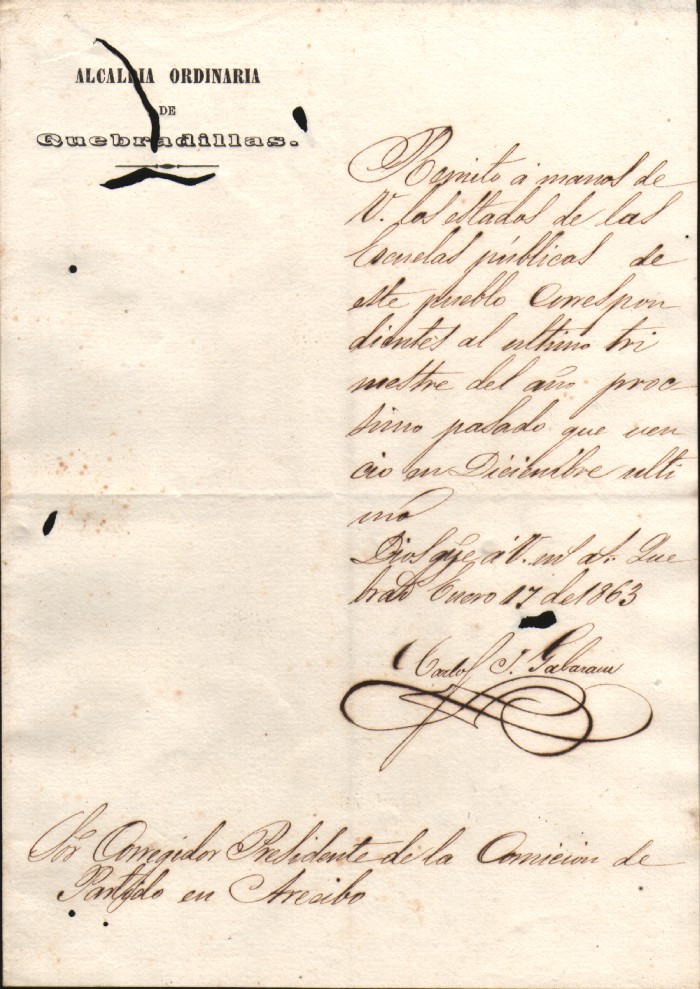 ALCALDIA ORDINARIA
DE
Quebradillas.
Remito á manos de
V. los estados de las
Escuelas públicas de
este pueblo Correspon
dientes al ultimo tri
mestre del año proc
simo pasado que ven
cio en Diciembre ulti
mo
Dios gue á V. en a.s Que
brads Enero 17 de 1863
Carlos J.
Sor Corregidor Presidente de la Comicion de
Partido en Arecibo